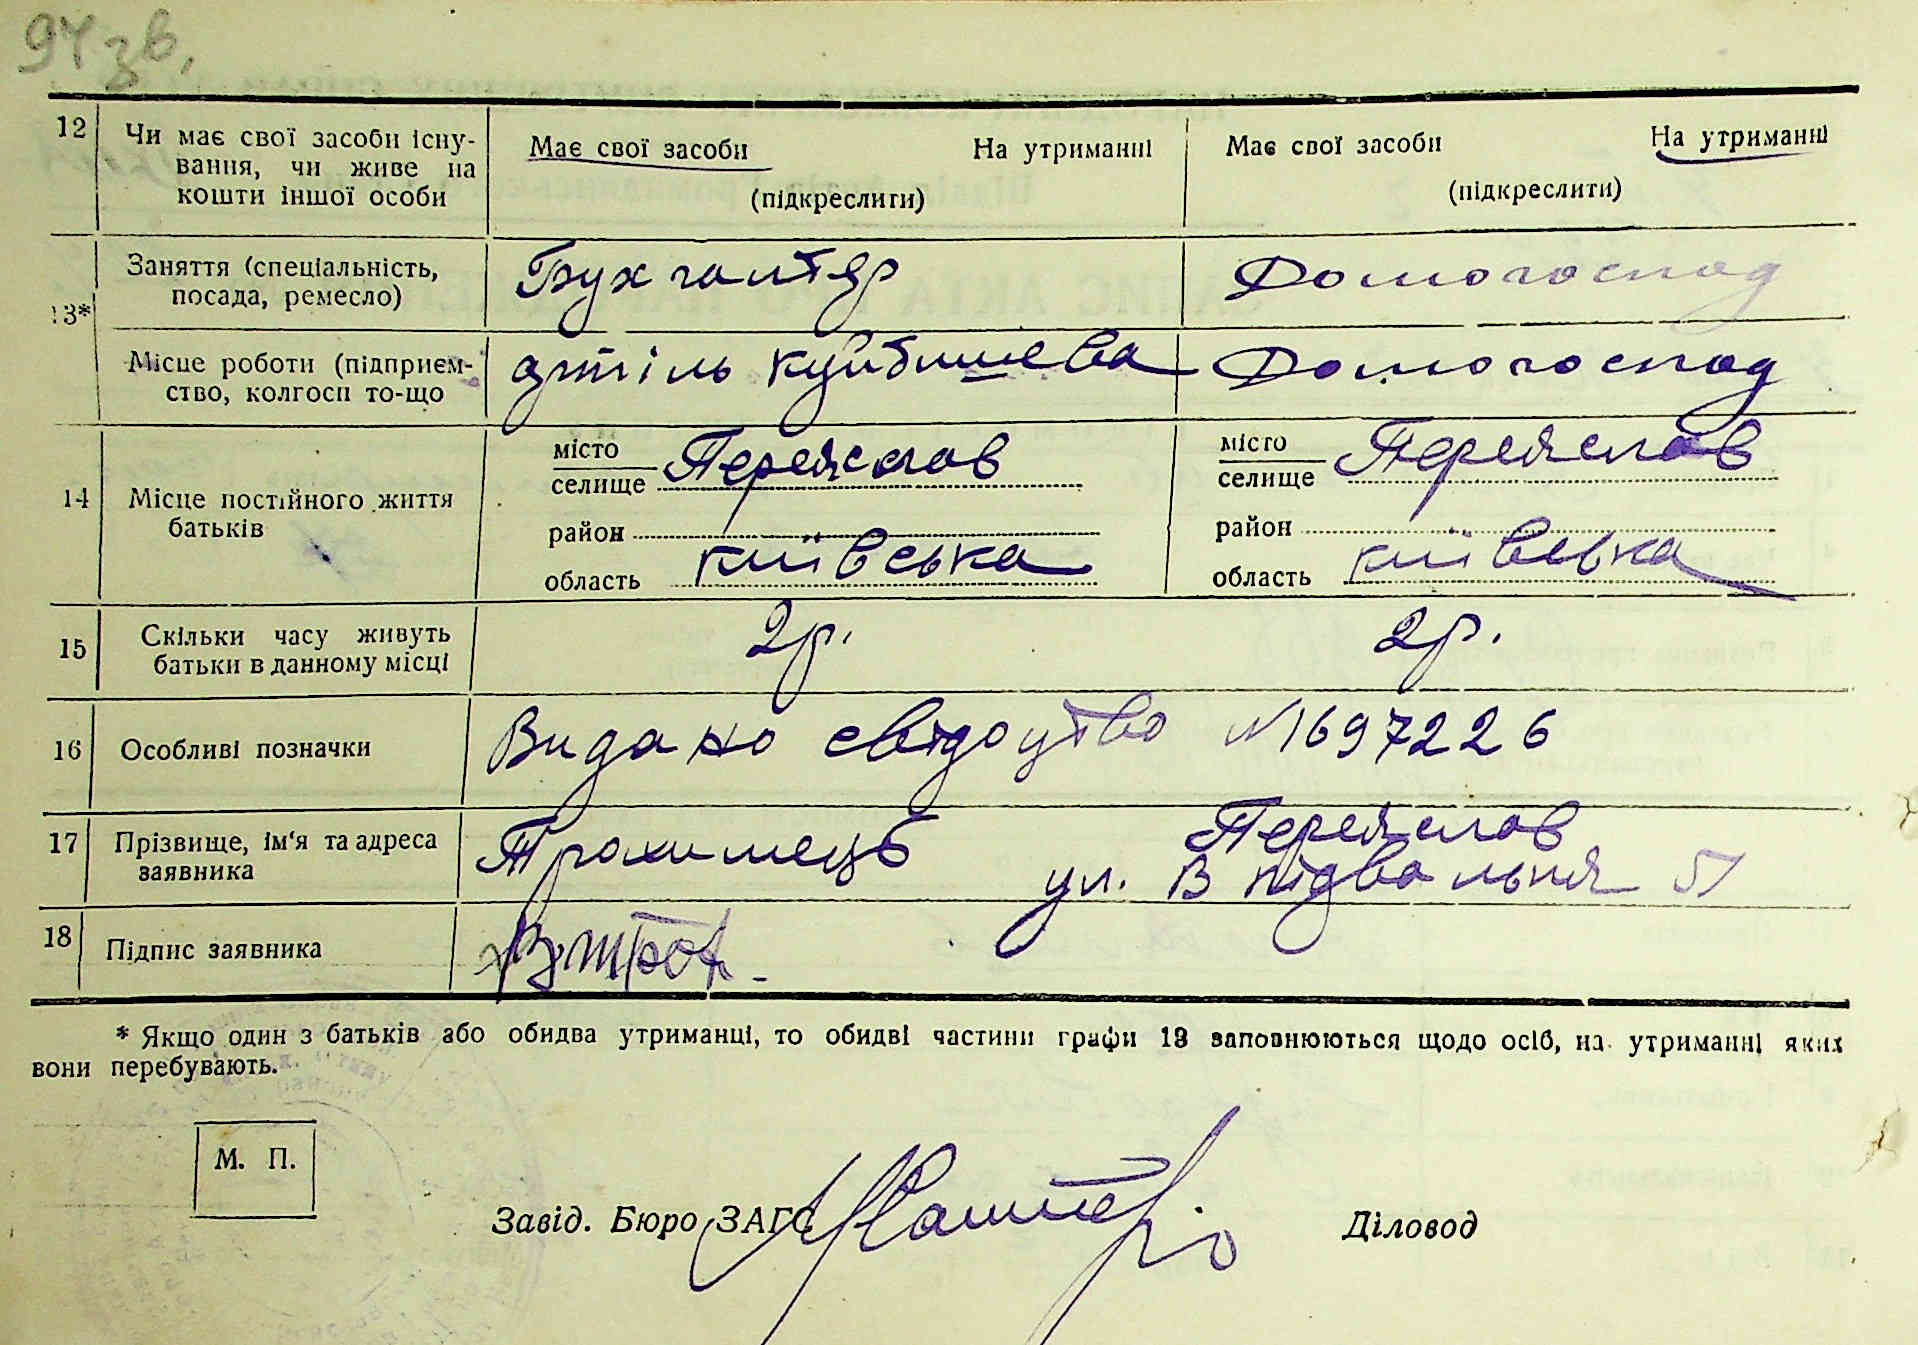 97 зв.
12 Чи має свої засоби існу- Має свої засоби На утриманні Має свої засоби На утриманні
вання, чи живе на
кошти іншої особи (підкреслити) (підкреслити)
13* Заняття (спеціальність, Бухгалтер Домогоспод
посада, ремесло)
Місце роботи (підприєм- артіль Куйбишева Домогоспод
ство, колгосп то-що
14 Місце постійного життя місто Переяслав місто Переяслав
батьків селище селище
район район
область київська область київська
15 Скільки часу живуть 2р. 2р.
батьки в данному місці
16 Особливі позначки Видано свідоцтво №697226
17 Прізвище, ім'я та адреса Трохимець Переяслав
заявника ул. В підвальня 51
18 Підпис заявника
* Якщо один з батьків або обидва утриманці, то обидві частини графи 13 заповнюються щодо осіб, на утриманні яких
вони перебувають.
М. П.
Завід. Бюро ЗАГС Діловод